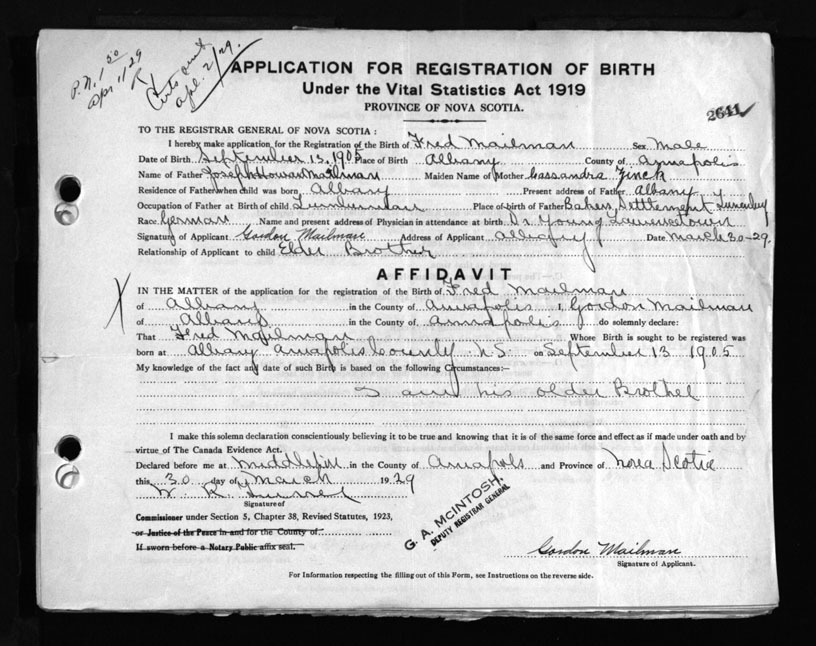 P.N. 1 50
Apr. 1/29
Certs sent
Apl. 2/29.
APPLICATION FOR REGISTRATION OF BIRTH
Under the Vital Statistics Act 1919
PROVINCE OF NOVA SCOTIA.
2641
TO THE REGISTRAR GENERAL OF NOVA SCOTIA:
I hereby make application for the Registration of the Birth of Fred Mailman Sex Male
Date of Birth September 13, 1905 Place of Birth Albany County of Annapolis
Name of Father Joseph Howard Mailman Maiden Name of Mother Cassandra Zinck
Residence of Father when child was born Albany Present address of Father Albany
Occupation of Father at Birth of child Lumberman Place of birth of Father Bakers Settlement Lunenburg
Race German Name and present address of Physician in attendance at birth Dr. Young Lawrencetown
Signature of Applicant Gordon Mailman Address of Applicant Albany Date March 30-29.
Relationship of Applicant to child Elder Brother
AFFIDAVIT
IN THE MATTER of the application for the registration of the Birth of Fred Mailman
of Albany in the County of Annapolis I, Gordon Mailman
of Albany in the County of Annapolis do solemnly declare:
That Fred Mailman Whose Birth is sought to be registered was
born at Albany Annapolis County N.S. on September 13 1905
My knowledge of the fact and date of such Birth is based on the following Circumstances:—
I am his older Brother
I make this solemn declaration conscientiously believing it to be true and knowing that it is of the same force and effect as if made under oath and by
virtue of The Canada Evidence Act.
Declared before me at in the County of Annapolis and Province of Nova Scotia
this 30 day of March 1929
W. K.
Signature of
Commissioner under Section 5, Chapter 38, Revised Statutes, 1923,
or Justice of the Peace in and for the County of
If sworn before a Notary Public affix seal.
G. A. MCINTOSH,
DEPUTY REGISTRAR GENERAL
Gordon Mailman
Signature of Applicant.
For Information respecting the filling out of this Form, see Instructions on the reverse side.